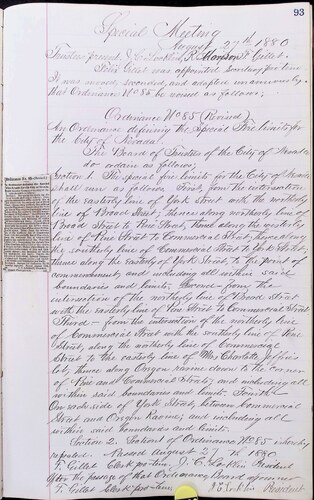 93
Special Meeting
August 27th 1880
Trustees present, Larkin, R. Morrison F. Gillet.
Felix Gillet was appointed Secretary pro tem
It was moved, seconded, and adopted unanimously
that Ordinance No 85 be revised as follows;
Ordinance No 85 (Revised)
An Ordinance defining the Special Fire limits for
the City of Nevada.
The Board of Trustees of the City of Nevada
do ordain as follows;
Section 1. The special fire limits for the City of Nevada
shall run as follows: First, from the intersection
of the easterly line of York Street with the northerly
line of Broad Street; thence along northerly line of
Broad Street to Pine Street, thence along the easterly
line of Pine Street to Commercial Street, thence along
the southerly line of Commercial Street to York Street,
thence along the easterly of York Street, to the point of
commencement, and including all within said
boundaries and limits; Second - from the
intersection of the northerly line of Broad Street
with the easterly line of Pine Street to Commercial Street
Third - from the intersection of the northerly line
of Commercial Street with the westerly line of Pine
Street, along the northerly line of Commercial
Street to the easterly line of Mrs Charlotte
lot, thence along Oregon ravine down to the corner
of Pine and Commercial Streets; and including all
within said boundaries and limits. Fourth -
On side of York Street, between Commercial
Street and Oregon Ravine; and including all
within said boundaries and limits.
Section 2. Section 1 of Ordinance No 85 is hereby
repealed. Passed August 27th 1880
F. Gillet Clerk pro tem. Larkin President
After the passage of that Ordinance, Board adjourned
F. Gillet Clerk pro tem Larkin President